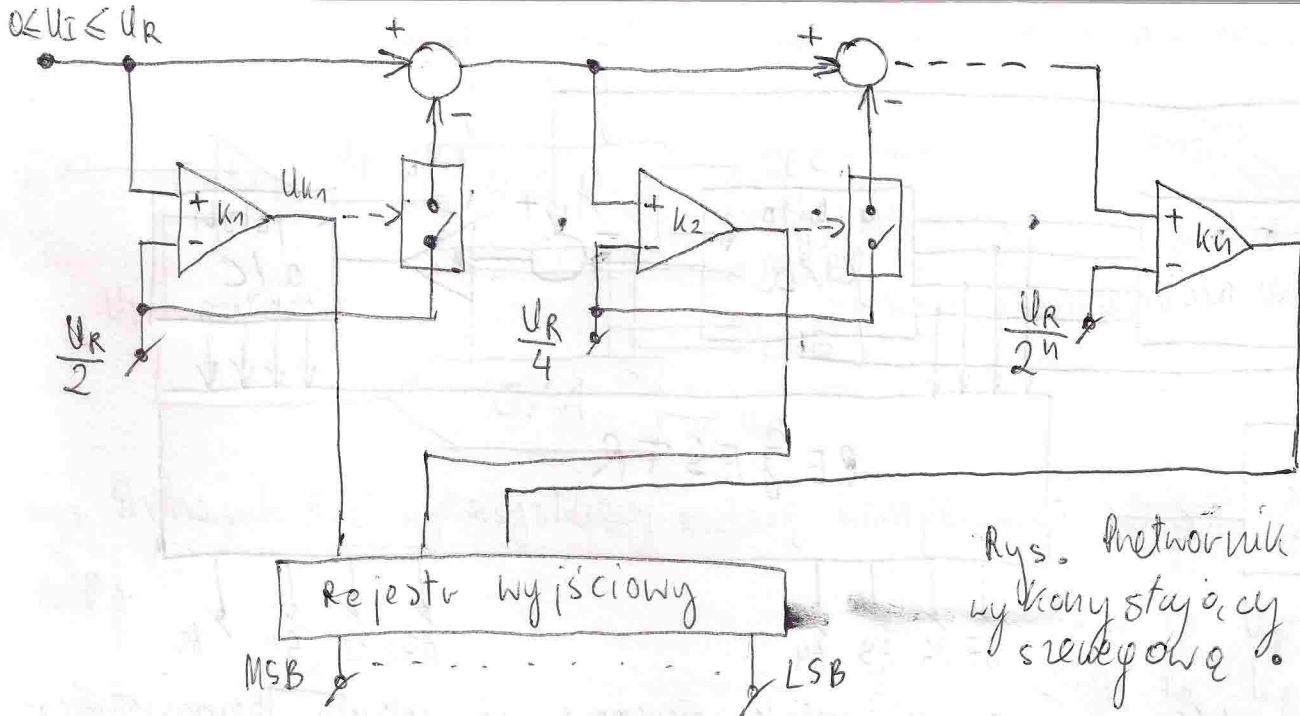 0≤UI≤UR
+
+
-
-
+
K1
-
UK1
+
K2
-
+
Kn
-
UR
2
UR
4
UR
2^n
Rejestr wyjściowy
MSB
LSB
Rys. Przetwornik
wykorzystający
szeregową.